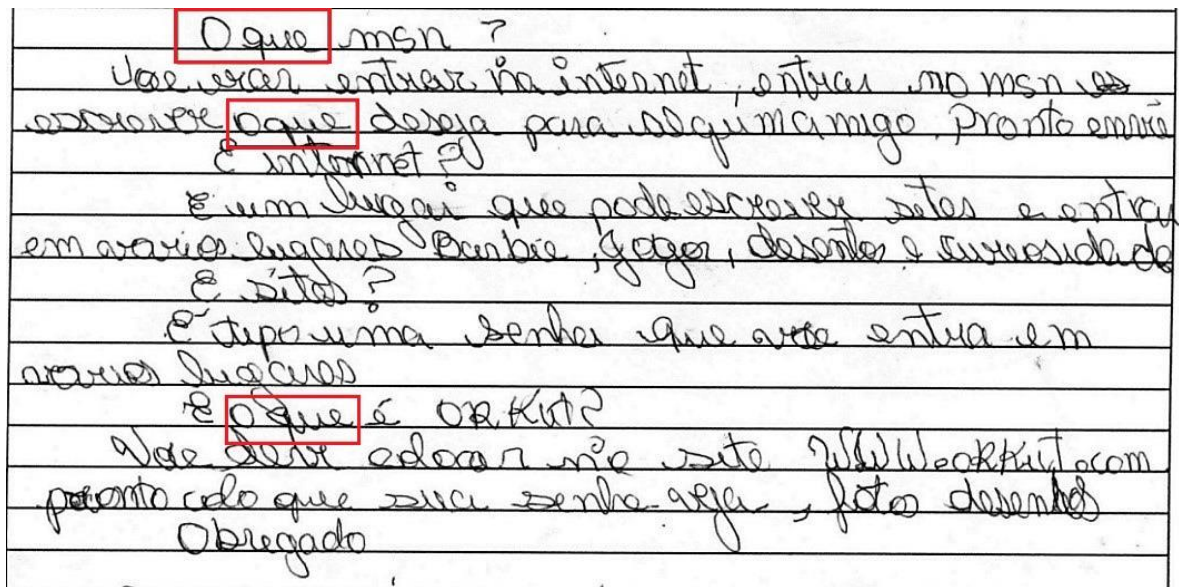 Oque msn ?
entrar na internet, entrar no msn
escrever oque deseja para algum amigo, Pronto envie
E internet?
É um lugar que pode escrever sites e entrar
em varios lugares Barbie, jogos, desenhos e curiosidade
E sites?
É tipo uma senha que voce entra em
varios lugares
E oque é ORKut?
Voce deve colocar no site WWW.orkut.com
pronto coloque sua senha veja, fotos desenhos
Obregado